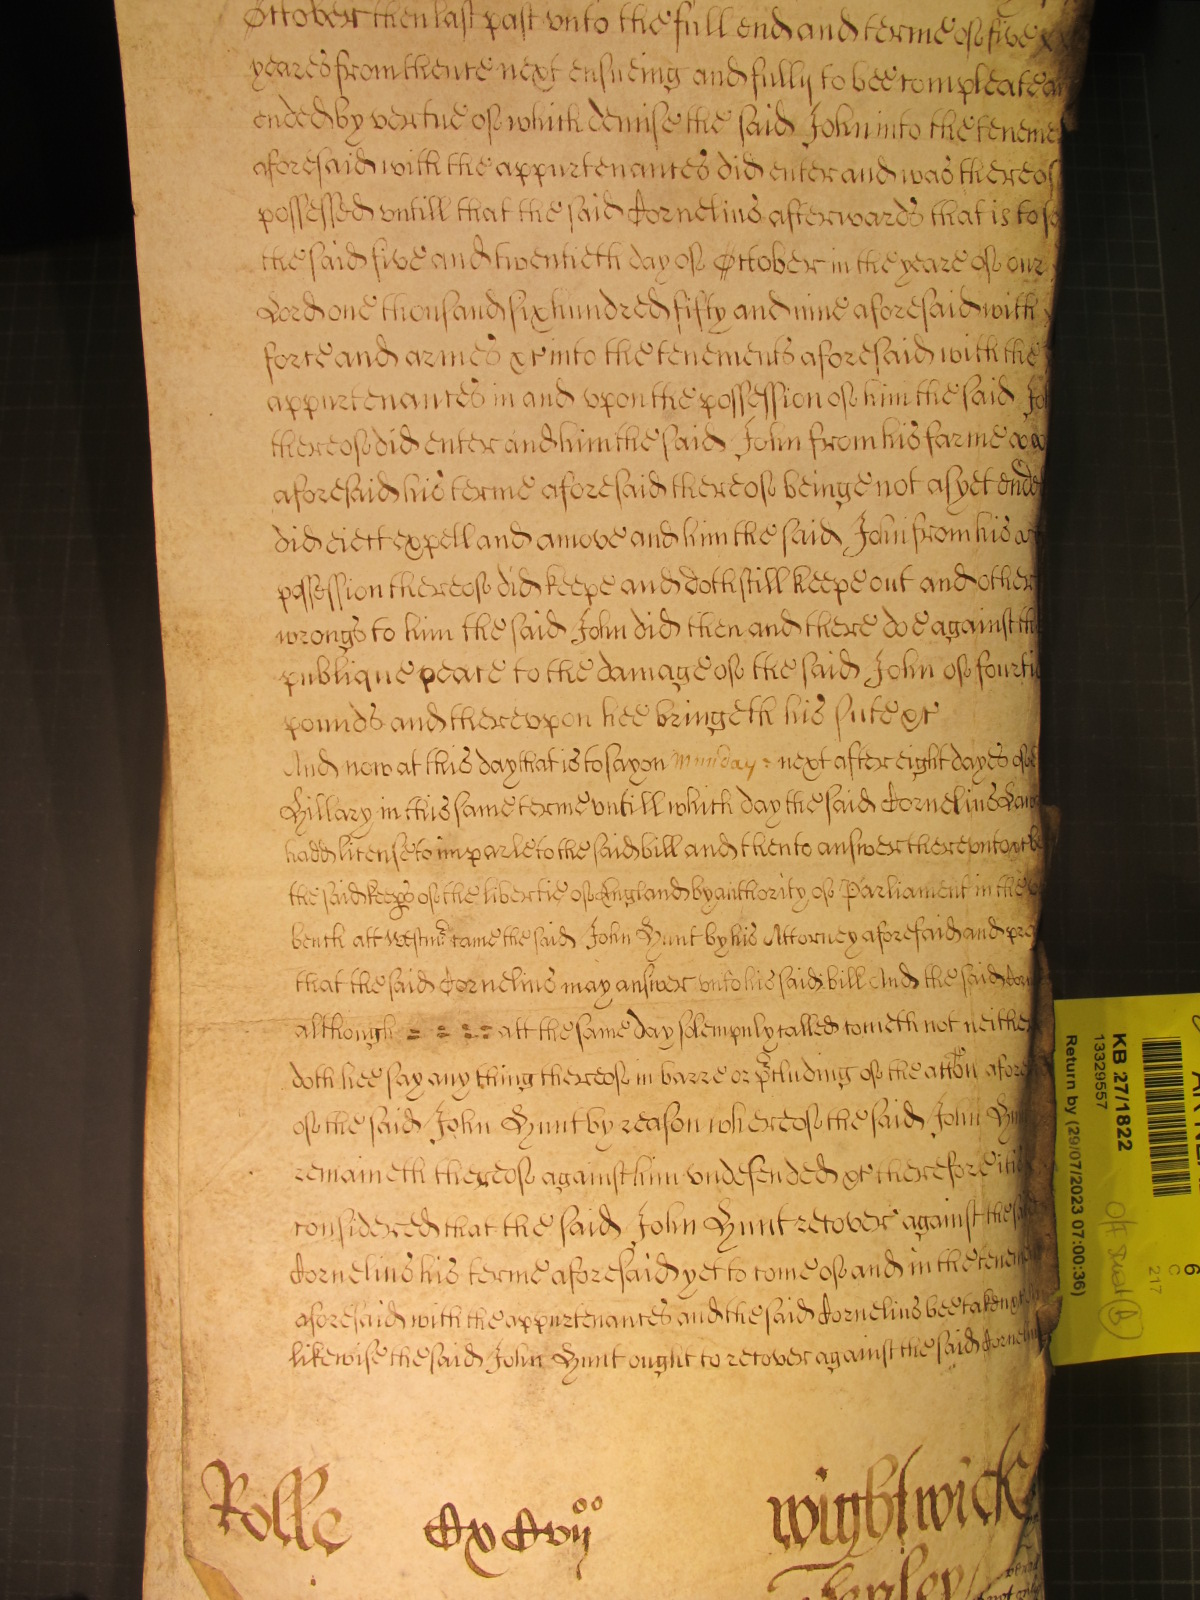 October then last past vnto the full end and terme of five
yeares from thence next ensueing and fully to bee compleate
ended by vertue of which demise the said John into the teneme
aforesaid with the appurtenances did enter and was thereof
possessed vntill that the said Cornelius afterwards that is to
the said five and twentieth day of October in the yeare of our
Lord one thousand six hundred fifty and nine aforesaid with
force and armes &c into the tenements aforesaid with the
appurtenances in and vpon the possession of him the said Jo
thereof did enter and him the said John from his farme
aforesaid his terme aforesaid thereof beinge not as yet ended
did eiect expell and amove and him the said John from his
possession thereof did keepe and doth still keepe out and other
wrongs to him the said John did then and there doe against th
publique peace to the damage of the said John of fourti
pounds and therevpon hee bringeth his sute &c
And now at this day that is to say on Munday next after eight dayes of
Hillary in this same terme vntill which day the said Cornelius
hadd license to imparle to the said bill and then to answer therevnto &c
the said keeps of the libertie of England by authority of Parliament in the
bench att Westmr came the said John Hunt by his Attorney aforesaid and
that the said Cornelius may answer vnto his said bill And the said
although = = = = att the same day solempnly called cometh not neither
doth hee say any thing thereof in barre or pcluding of the accon afore
of the said John Hunt by reason whereof the said John
remaineth thereof against him vndefended &c therefore it
considered that the said John Hunt recover against the
Cornelius his terme aforesaid yet to come of and in the tenem
aforesaid with the appurtenances and the said Cornelius bee taken
likewise the said John Hunt ought to recover against the said
Rolle CxCvijoo Wightwick
KB 27/1822
13329557
Return by (29/07/2023 07:00:36)
6
C
217